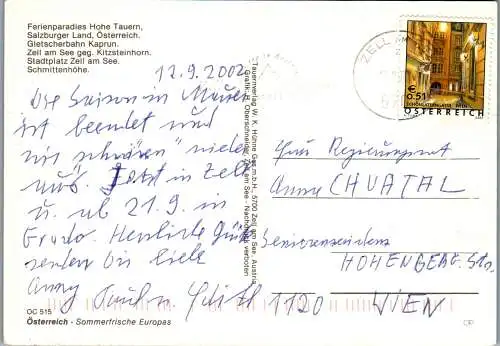 Ferienparadies Hohe Tauern,
Salzburger Land, Österreich.
Gletscherbahn Kaprun.
Zell am See geg. Kitzsteinhorn.
Stadtplatz Zell am See.
Schmittenhöhe.
12.9.2002
Die Saison in
ist beendet und
wir
aus. Jetzt in Zell
u. ab 21.9. in
Grado. Herzliche Grüße
senden Dir
Anny Paul u. Edith
OC 515
Österreich - Sommerfrische Europas
Tauernverlag W. K. Hühne Ges.m.b.H., 5700 Zell am See, Austria
Grafik: H. Oberschneider, Zell am See - Nachdruck verboten
ZELL AM
€ 0,51
SCHÖNLATERNGASSE WIEN
ÖSTERREICH
Frau Regierungsrat
Anna CHVATAL
Seniorenresidenz
HOHENBERG. Str.
1120 WIEN